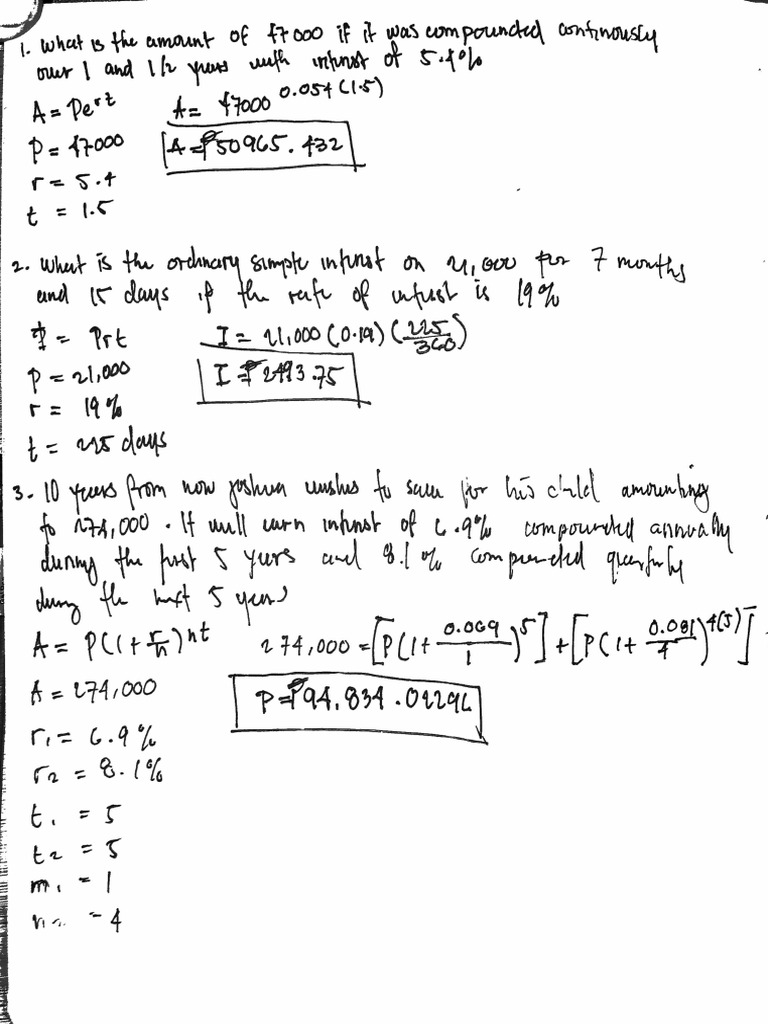 1. What is the amount of 47000 if it was compounded continously
over 1 and 1/2 years with interest of 5.4%
A = Pe^rt    A = 47000^0.054(1.5)
P = 47000    A = ₱50965.432
r = 5.4
t = 1.5
2. What is the ordinary simple interest on 21,000 for 7 months
and 15 days if the rate of interest is 19%
I = Prt    I = 21,000 (0.19) (225/360)
P = 21,000    I = ₱2493.75
r = 19%
t = 225 days
3. 10 years from now Joshua wishes to save for his child amounting
to 274,000. It will earn interest of 6.9% compounded annually
during the first 5 years and 8.1% compounded quarterly
during the next 5 years
A = P(1 + r/n)^nt    274,000 = [P(1 + 0.069/1)^5] + [P(1 + 0.081/4)^4(5)]
A = 274,000    P = ₱94,834.02296
r1 = 6.9%
r2 = 8.1%
t1 = 5
t2 = 5
m1 = 1
n2 = 4